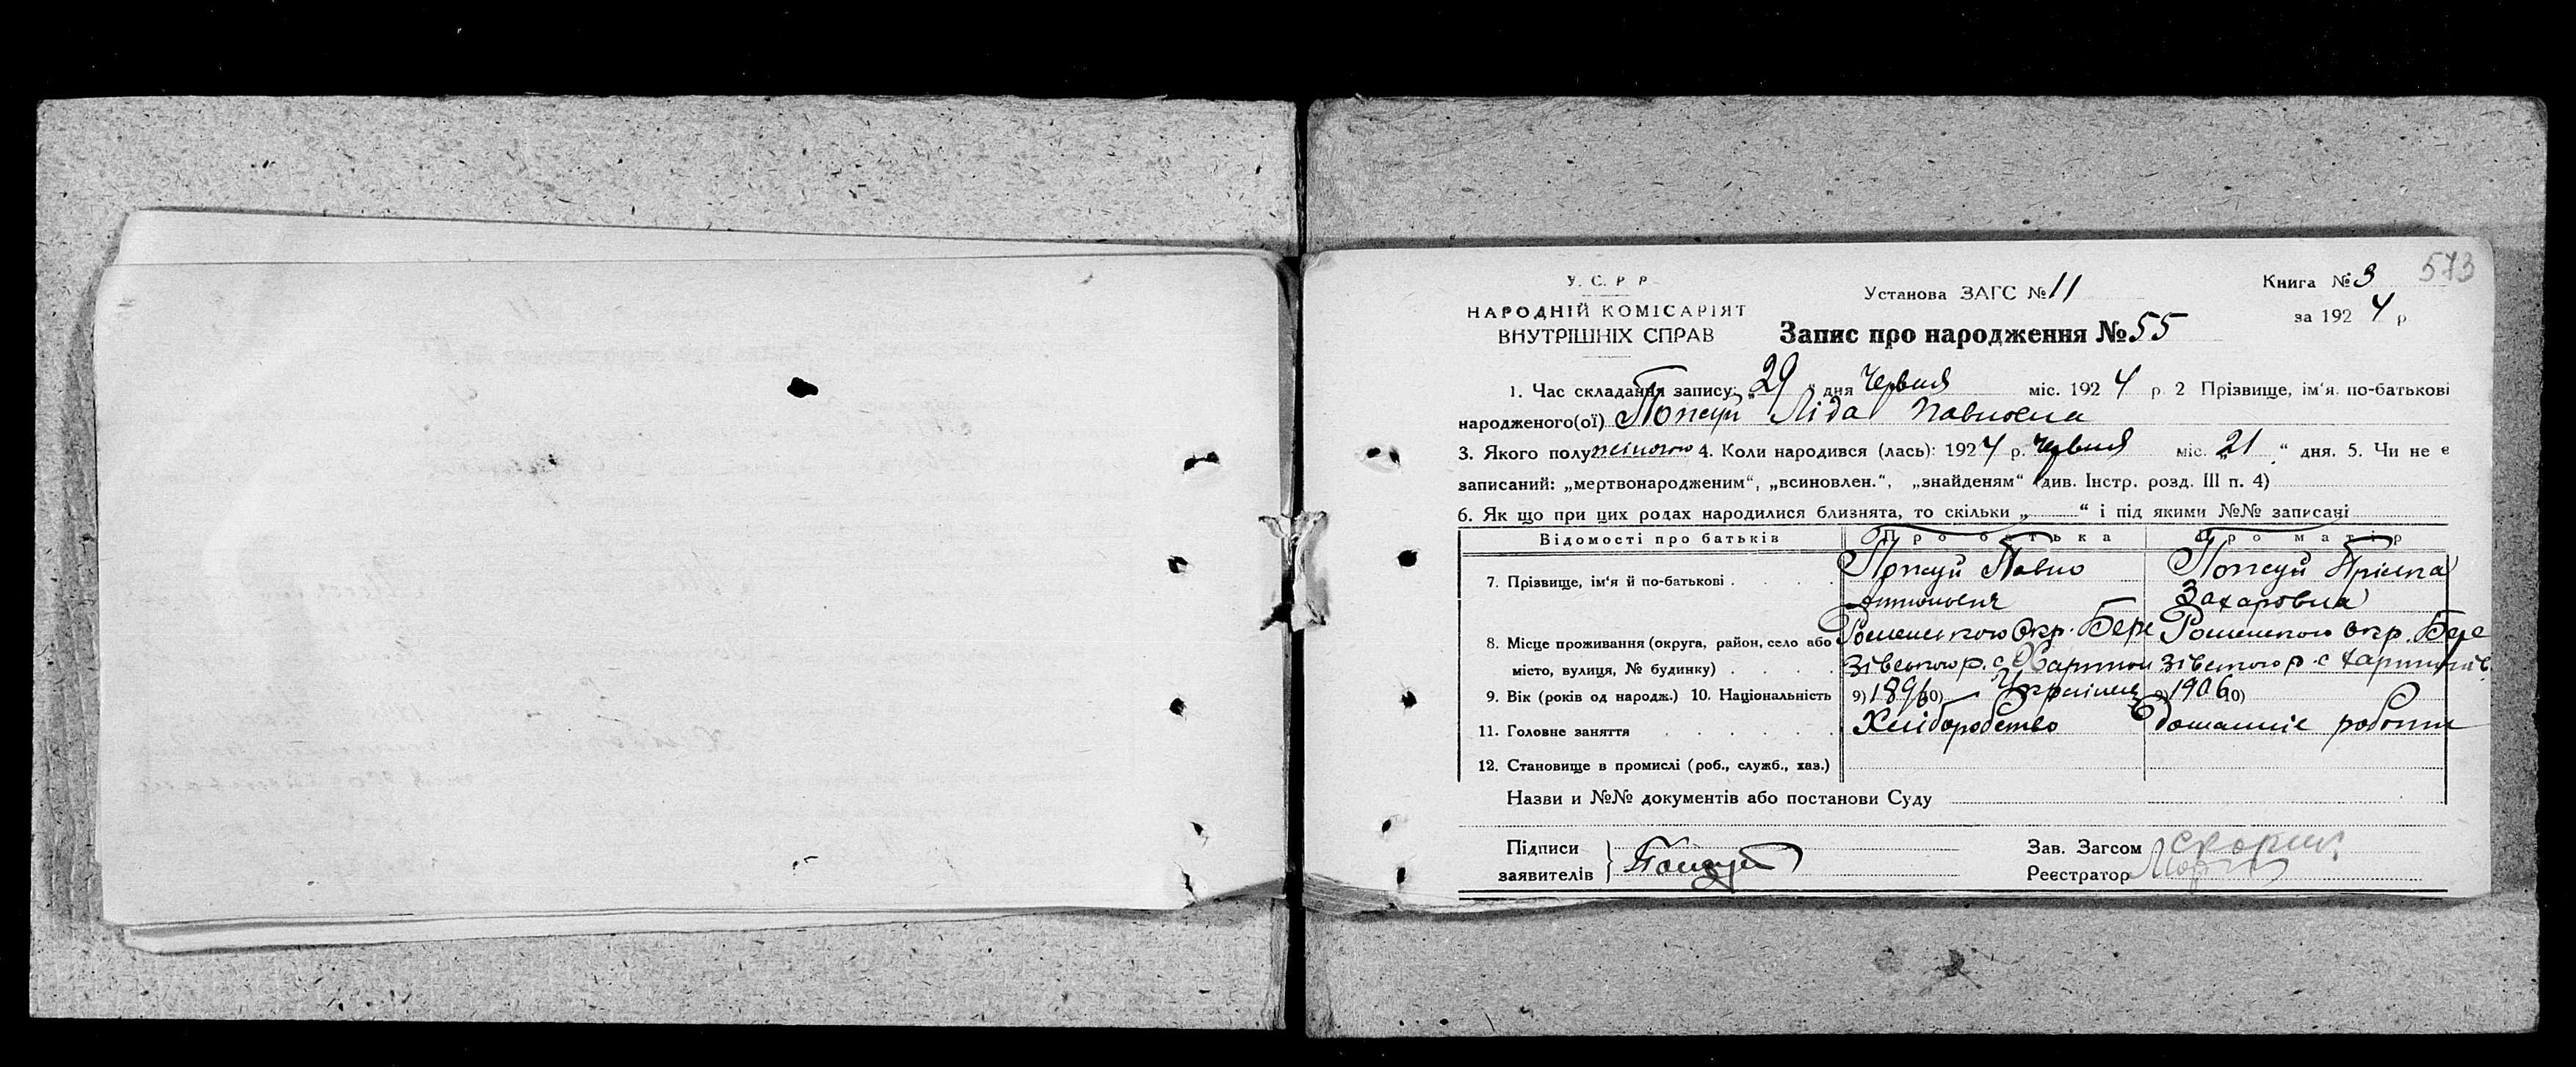 573
У. С. Р. Р.
НАРОДНІЙ КОМІСАРІЯТ
ВНУТРІШНІХ СПРАВ
Установа ЗАГС № 11
Книга № 3
за 1924 р
Запис про народження № 55
1. Час складання запису: „29" дня Червня міс. 1924 р. 2 Прізвище, ім'я, по-батькові
народженого(ої) Ліда Павловна
3. Якого полу жіночого 4. Коли народився (лась): 1924 р. Червня міс. „21" дня. 5. Чи не є
записаний: „мертвонародженим", „всиновлен.", „знайденям" (див. Інстр. розд. III п. 4)
6. Як що при цих родах народилися близнята, то скільки „ " і під якими №№ записані
Відомості про батьків Про батька Про матір
7. Прізвище, ім'я й по-батькові Павло
Антонович Захаровна
8. Місце проживання (округа, район, село або Роменського Окр. Бере Роменского окр. Бере
місто, вулиця, № будинку) зівського р. с зівського р. с
9. Вік (років од народж.) 10. Національність 9) 1896 10) Українец 9) 1906 10)
11. Головне заняття Хліборобство домашніе роботи
12. Становище в промислі (роб., служб., хаз.)
Назви и №№ документів або постанови Суду
Підписи
заявителів
Зав. Загсом
Реєстратор